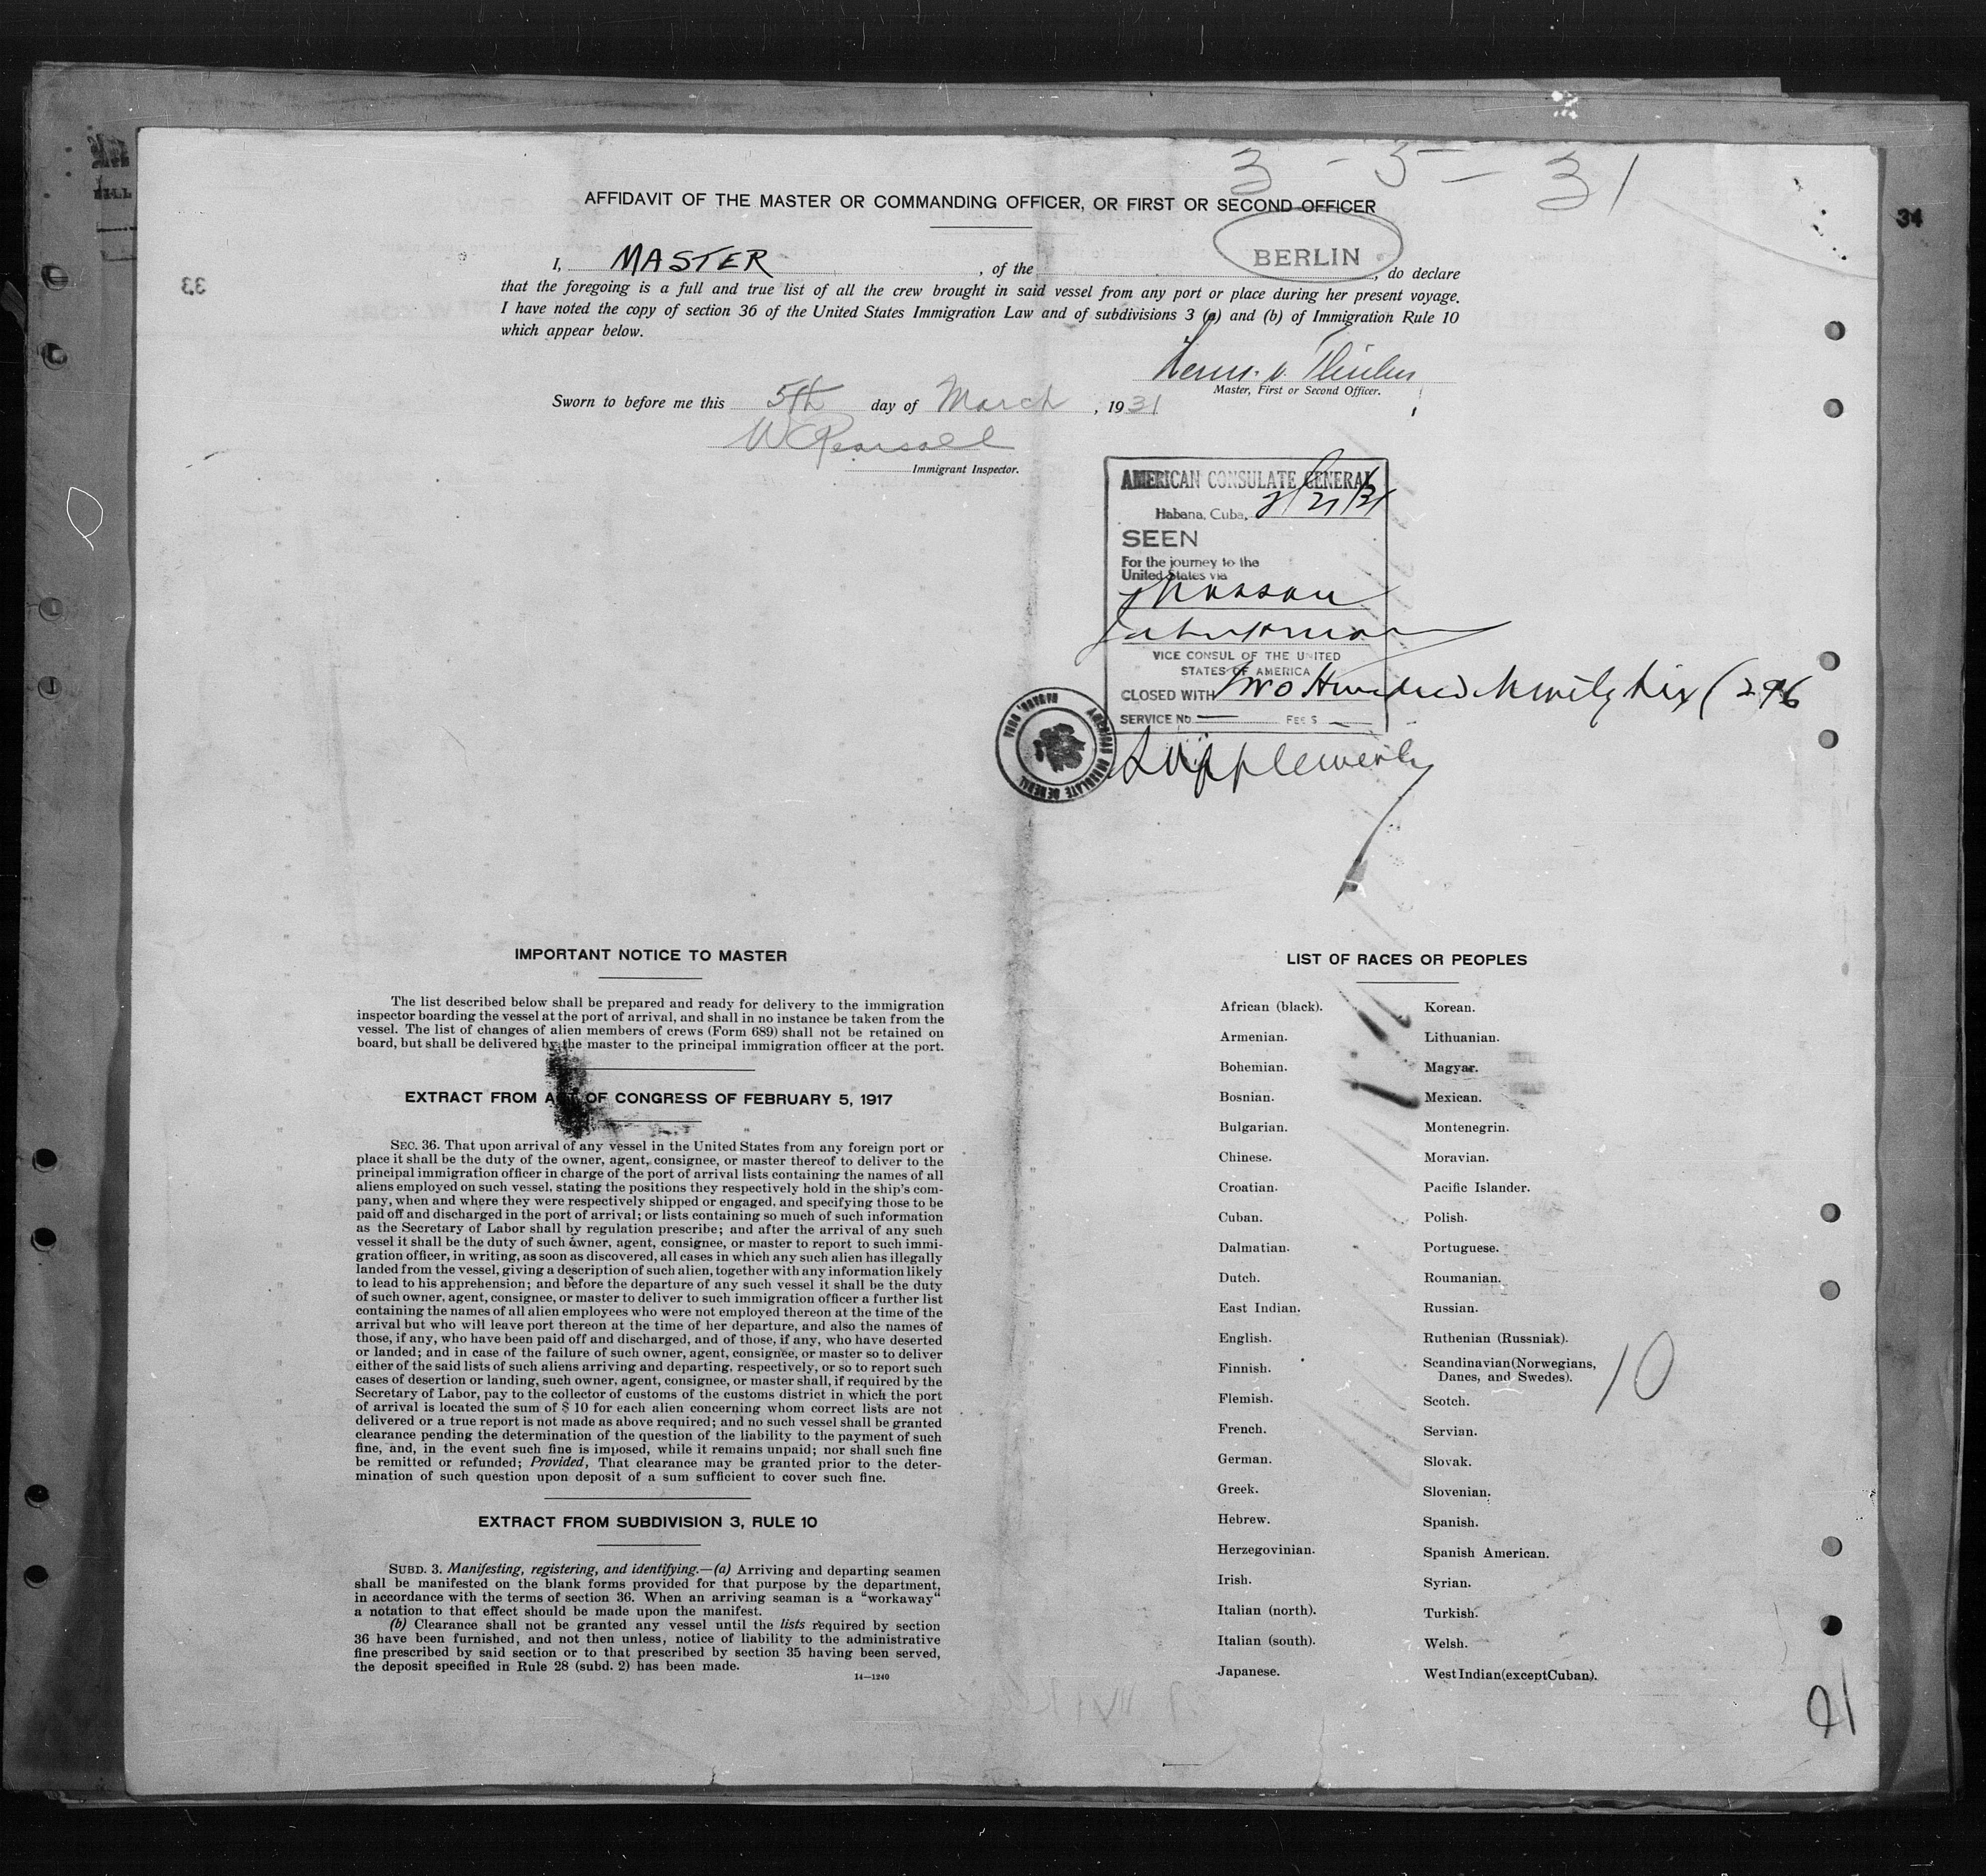 3 - 5 - 31
AFFIDAVIT OF THE MASTER OR COMMANDING OFFICER, OR FIRST OR SECOND OFFICER
34
BERLIN
I, MASTER , of the , do declare
33
that the foregoing is a full and true list of all the crew brought in said vessel from any port or place during her present voyage.
I have noted the copy of section 36 of the United States Immigration Law and of subdivisions 3 (a) and (b) of Immigration Rule 10
which appear below.
Master, First or Second Officer.
Sworn to before me this 5th day of March , 1931
W Pearsall
Immigrant Inspector.
AMERICAN CONSULATE GENERAL
Habana, Cuba, 2/27/31
SEEN
For the journey to the
United States via
Nassau
VICE CONSUL OF THE UNITED
STATES OF AMERICA
CLOSED WITH Two Hundred Ninety Six (296
SERVICE No — FEE $ —
AMERICAN CONSULATE GENERAL
HABANA, CUBA
IMPORTANT NOTICE TO MASTER
The list described below shall be prepared and ready for delivery to the immigration
inspector boarding the vessel at the port of arrival, and shall in no instance be taken from the
vessel. The list of changes of alien members of crews (Form 689) shall not be retained on
board, but shall be delivered by the master to the principal immigration officer at the port.
EXTRACT FROM ACT OF CONGRESS OF FEBRUARY 5, 1917
SEC. 36. That upon arrival of any vessel in the United States from any foreign port or
place it shall be the duty of the owner, agent, consignee, or master thereof to deliver to the
principal immigration officer in charge of the port of arrival lists containing the names of all
aliens employed on such vessel, stating the positions they respectively hold in the ship's com-
pany, when and where they were respectively shipped or engaged, and specifying those to be
paid off and discharged in the port of arrival; or lists containing so much of such information
as the Secretary of Labor shall by regulation prescribe; and after the arrival of any such
vessel it shall be the duty of such owner, agent, consignee, or master to report to such immi-
gration officer, in writing, as soon as discovered, all cases in which any such alien has illegally
landed from the vessel, giving a description of such alien, together with any information likely
to lead to his apprehension; and before the departure of any such vessel it shall be the duty
of such owner, agent, consignee, or master to deliver to such immigration officer a further list
containing the names of all alien employees who were not employed thereon at the time of the
arrival but who will leave port thereon at the time of her departure, and also the names of
those, if any, who have been paid off and discharged, and of those, if any, who have deserted
or landed; and in case of the failure of such owner, agent, consignee, or master so to deliver
either of the said lists of such aliens arriving and departing, respectively, or so to report such
cases of desertion or landing, such owner, agent, consignee, or master shall, if required by the
Secretary of Labor, pay to the collector of customs of the customs district in which the port
of arrival is located the sum of $ 10 for each alien concerning whom correct lists are not
delivered or a true report is not made as above required; and no such vessel shall be granted
clearance pending the determination of the question of the liability to the payment of such
fine, and, in the event such fine is imposed, while it remains unpaid; nor shall such fine
be remitted or refunded; Provided, That clearance may be granted prior to the deter-
mination of such question upon deposit of a sum sufficient to cover such fine.
EXTRACT FROM SUBDIVISION 3, RULE 10
SUBD. 3. Manifesting, registering, and identifying.—(a) Arriving and departing seamen
shall be manifested on the blank forms provided for that purpose by the department,
in accordance with the terms of section 36. When an arriving seaman is a "workaway"
a notation to that effect should be made upon the manifest.
(b) Clearance shall not be granted any vessel until the lists required by section
36 have been furnished, and not then unless, notice of liability to the administrative
fine prescribed by said section or to that prescribed by section 35 having been served,
the deposit specified in Rule 28 (subd. 2) has been made.
14—1240
LIST OF RACES OR PEOPLES
African (black).
Armenian.
Bohemian.
Bosnian.
Bulgarian.
Chinese.
Croatian.
Cuban.
Dalmatian.
Dutch.
East Indian.
English.
Finnish.
Flemish.
French.
German.
Greek.
Hebrew.
Herzegovinian.
Irish.
Italian (north).
Italian (south).
Japanese.
Korean.
Lithuanian.
Magyar.
Mexican.
Montenegrin.
Moravian.
Pacific Islander.
Polish.
Portuguese.
Roumanian.
Russian.
Ruthenian (Russniak).
Scandinavian (Norwegians,
Danes, and Swedes).
Scotch.
Servian.
Slovak.
Slovenian.
Spanish.
Spanish American.
Syrian.
Turkish.
Welsh.
West Indian (except Cuban).
10